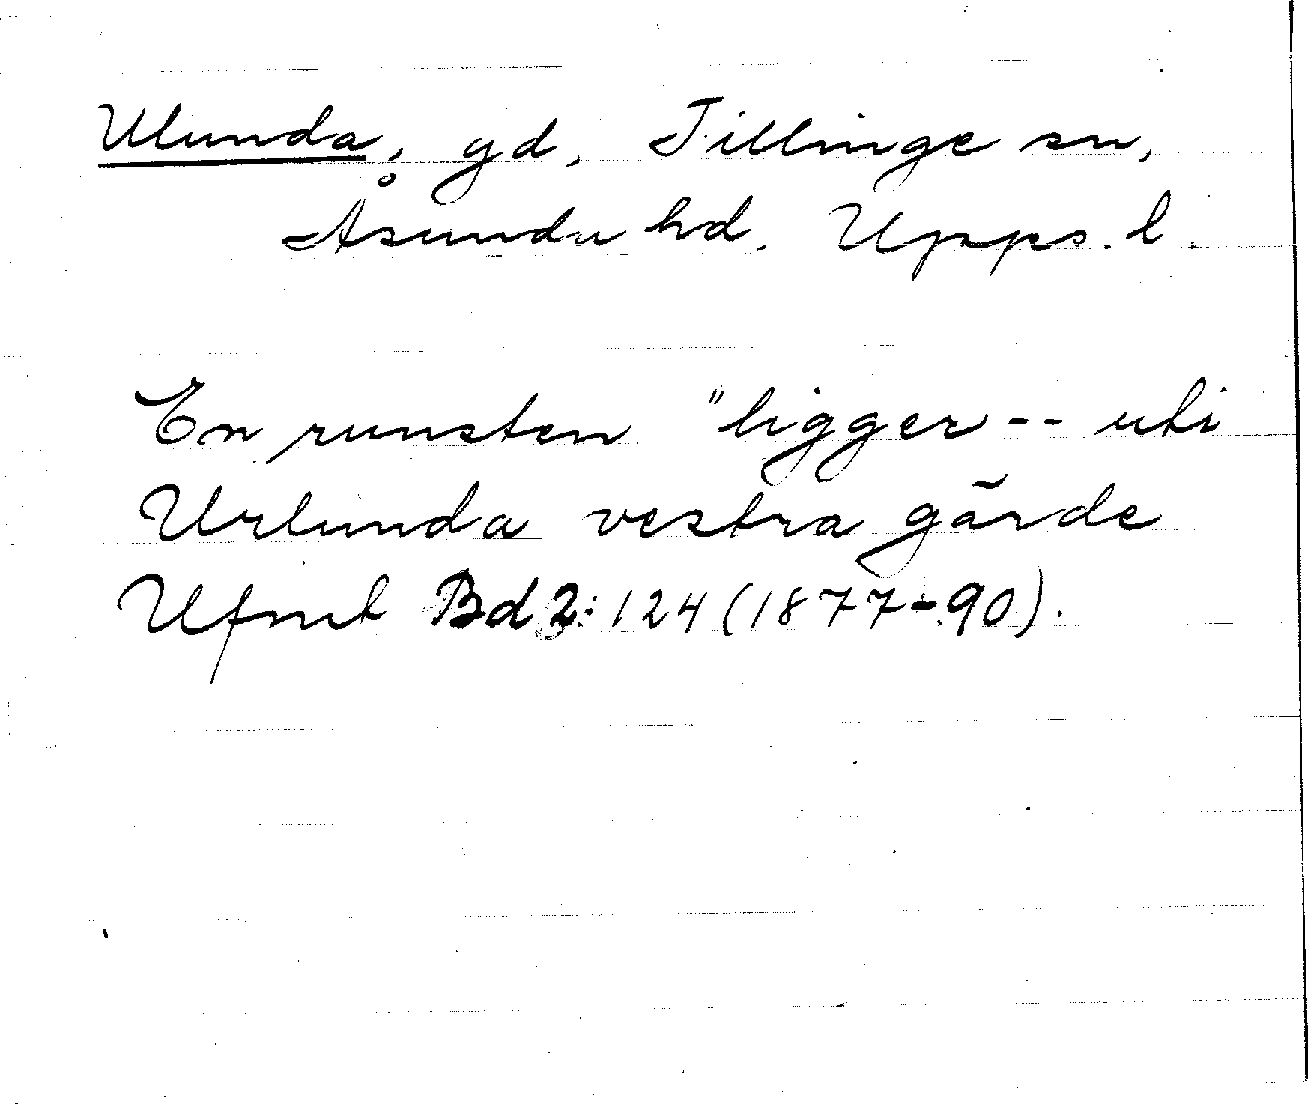 Ulunda, gd, Tillinge sn,
Åsunda hd. Upps. l.
En runsten "ligger -- uti
Urlunda vestra gärde
Ufmt Bd 2: 124 (1877-90).